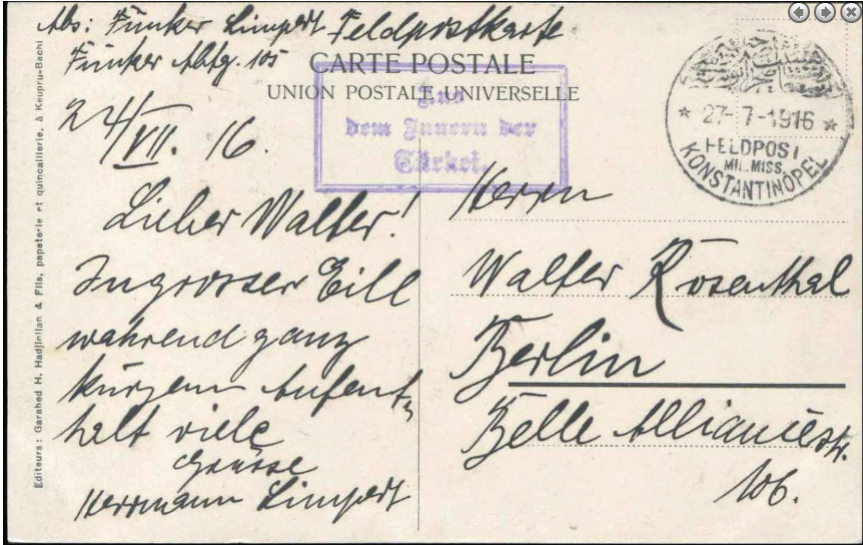 Abs: Funker Limpert Feldpostkarte
Funker Abtg. 105
CARTE POSTALE
UNION POSTALE UNIVERSELLE
Aus
dem Innern der
Türkei.
24/VII. 16.
27-7-1916
FELDPOST
MIL. MISS.
KONSTANTINOPEL
Lieber Walter!
In grosser Eill
während ganz
kurzem Aufent-
halt viele
Grüsse
Herrmann Limpert
Herrn
Walter Rosenthal
Berlin
Belle Alliancestr.
106.
Editeurs: Garabed H. Hadjinlian & Fils, papeterie et quincaillerie, à Keupru-Bachi